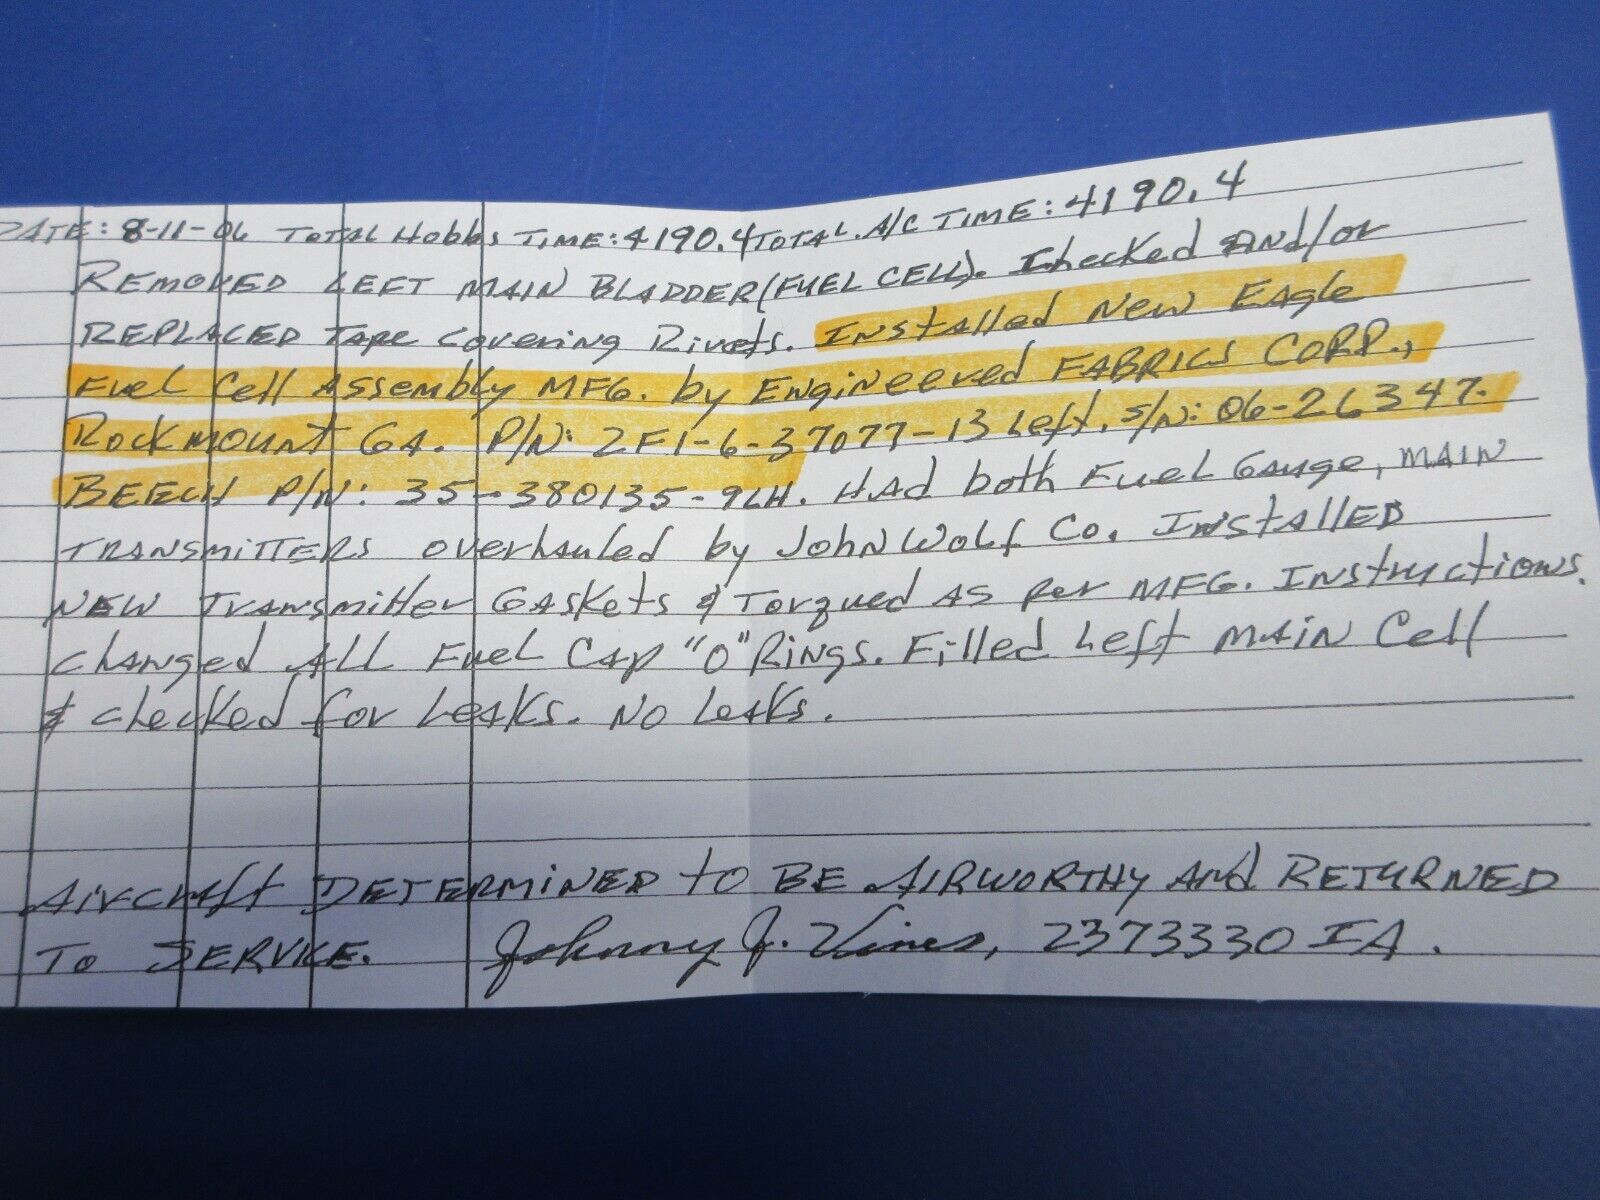 DATE: 8-11-06 TOTAL Hobbs TIME: 4190.4 TOTAL A/C TIME: 4190.4
REMOVED LEFT MAIN BLADDER (FUEL CELL). Checked And/or
REPLACED TAPE Covering Rivets. Installed New Eagle
Fuel Cell Assembly MFG. by Engineered FABRICS CORP.,
Rockmount GA. P/N: 2F1-6-37077-13 Left, S/N: 06-26347.
BEECH P/N: 35-380135-9LH. HAd both Fuel Gauge, MAIN
TRANSMITTERS overhauled by John Wolf Co. InstallED
NEW Transmitter GAskets & Torqued AS Per MFG. Instructions.
changed ALL Fuel Cap "O" Rings. Filled Left MAIN Cell
& checked for Leaks. No Leaks.
Aircraft DETERMINED to BE AIRWORTHY And RETURNED
To SERVICE. Johnny J. Vines, 2373330 IA.